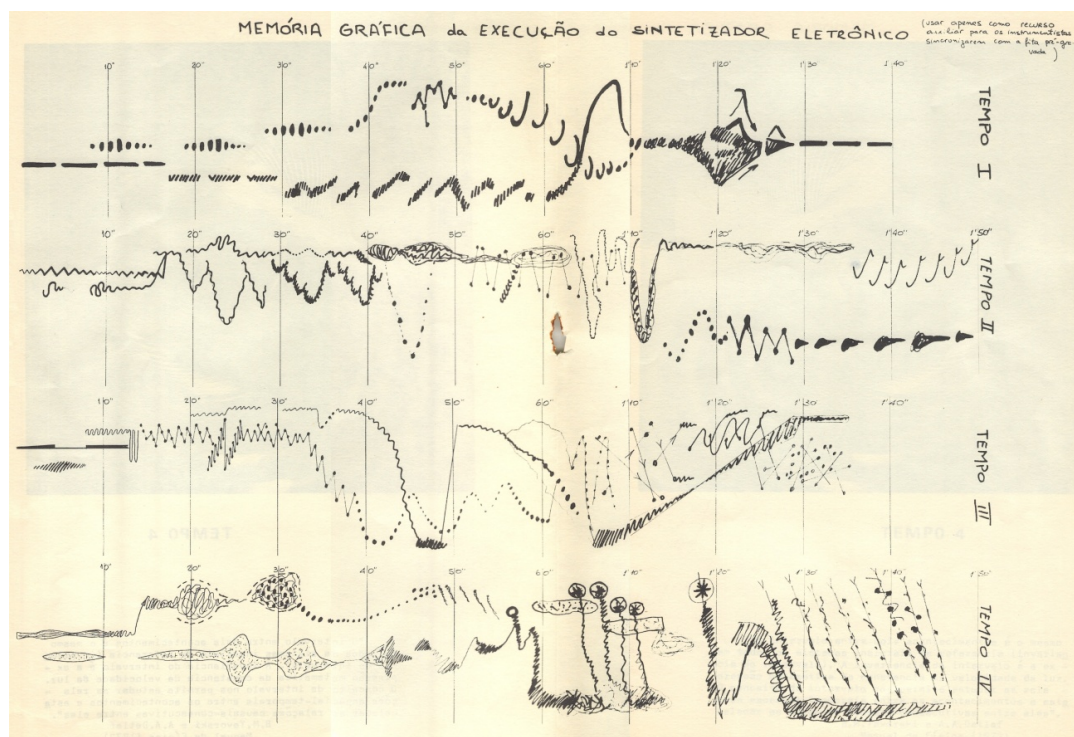 MEMÓRIA GRÁFICA da EXECUÇÃO do SINTETIZADOR ELETRÔNICO
(usar apenas como recurso
auxiliar para os instrumentistas
sincronizarem com a fita pré-gra
vada)
10" 20" 30" 40" 50" 60" 1'10" 1'20" 1'30" 1'40"
TEMPO I
10" 20" 30" 40" 50" 60" 1'10" 1'20" 1'30" 1'40" 1'50"
TEMPO II
10" 20" 30" 40" 50" 60" 1'10" 1'20" 1'30" 1'40"
TEMPO III
TEMPO 4
TEMPO 4
10" 20" 30" 40" 50" 60" 1'10" 1'20" 1'30" 1'40" 1'50"
TEMPO IV